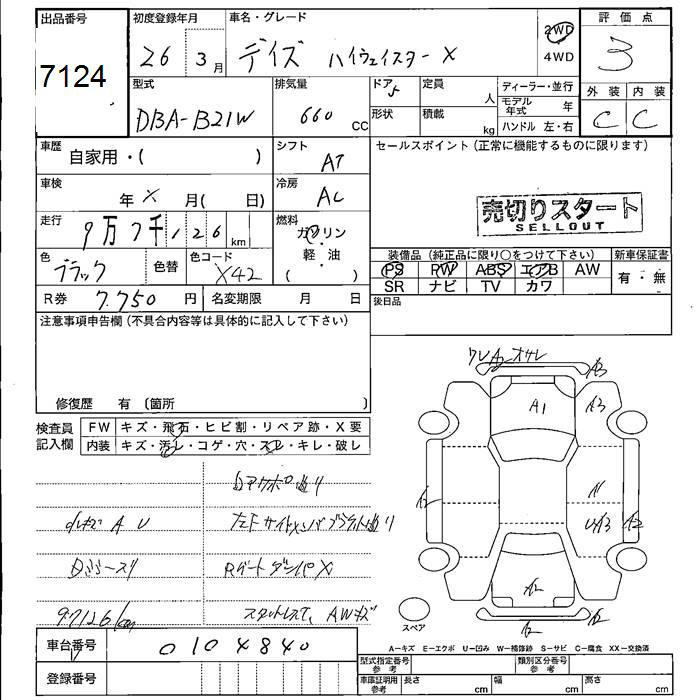 出品番号
7124
初度登録年月
26 3月
車名・グレード
デイズ ハイウェイスター X
2WD
4WD
評価点
3
外装 内装
C C
型式
DBA-B21W
排気量
660 CC
ドア 5
形状
定員 人
積載 kg
ディーラー・並行
モデル年式 年
ハンドル 左・右
車歴
自家用・( )
シフト
AT
セールスポイント(正常に機能するものに限ります)
車検
年 X 月( 日)
冷房
AC
売切りスタート
SELLOUT
走行
9万7千126 km
燃料
ガソリン
軽・油
( )
色
ブラック
色替
色コード
X42
装備品(純正品に限り○をつけて下さい)
新車保証書
PS PW ABS エアB AW
SR ナビ TV カワ
有・無
R券 7.750 円
名変期限 月 日
後日品
注意事項申告欄(不具合内容等は具体的に記入して下さい)
修復歴 有 (箇所 )
検査員記入欄
FW キズ・飛石・ヒビ割・リペア跡・X要
内装 キズ・汚レ・コゲ・穴・スレ・キレ・破レ
A U
RゲートダンパX
97126km
スタットレスで、AWキズ
A3
A1
A3
A2
A2
A2
A2
A2
スペア
A―キズ E―エクボ U―凹み W―補修跡 S―サビ C―腐食 XX―交換済
車台番号
0104840
登録番号
型式指定番号 参考
類別区分番号 参考
車庫証明用 参考
長さ cm 幅 cm 高さ cm